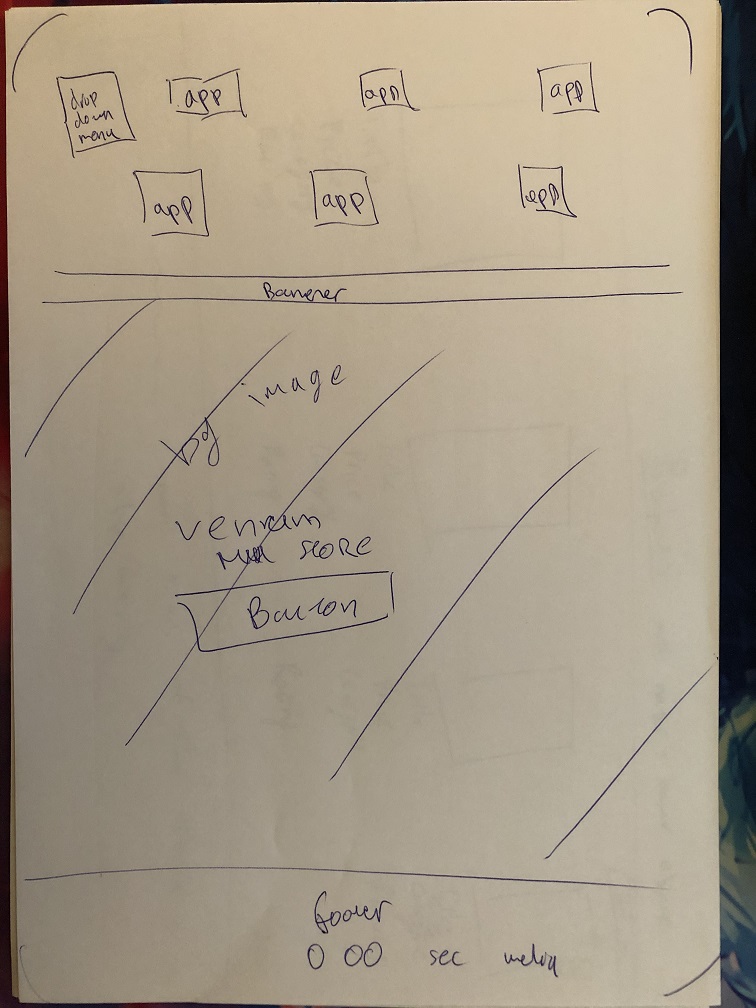 drop
down
menu
app
app
app
app
app
app
Banener
image
bg
score
Button
footer
0 00 sec media